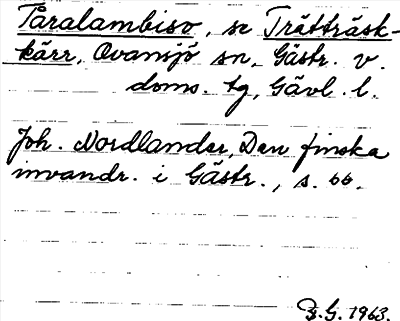 Påralambiso, se Trätträsk-
kärr, Ovansjö sn, Gästr. v.
doms. tg, Gävl. l.
Joh. Nordlander, Den finska
invandr. i Gästr., s. 66.
B.G. 1963.